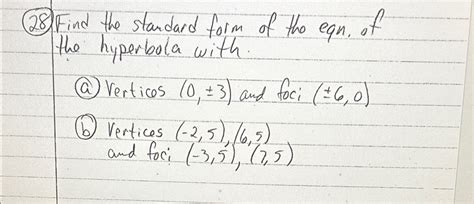 28 Find the standard form of the eqn. of
the hyperbola with.
(a) Verticos (0, ±3) and foci (±6, 0)
(b) Vertices (-2, 5), (6, 5)
and foci (-3, 5), (7, 5)